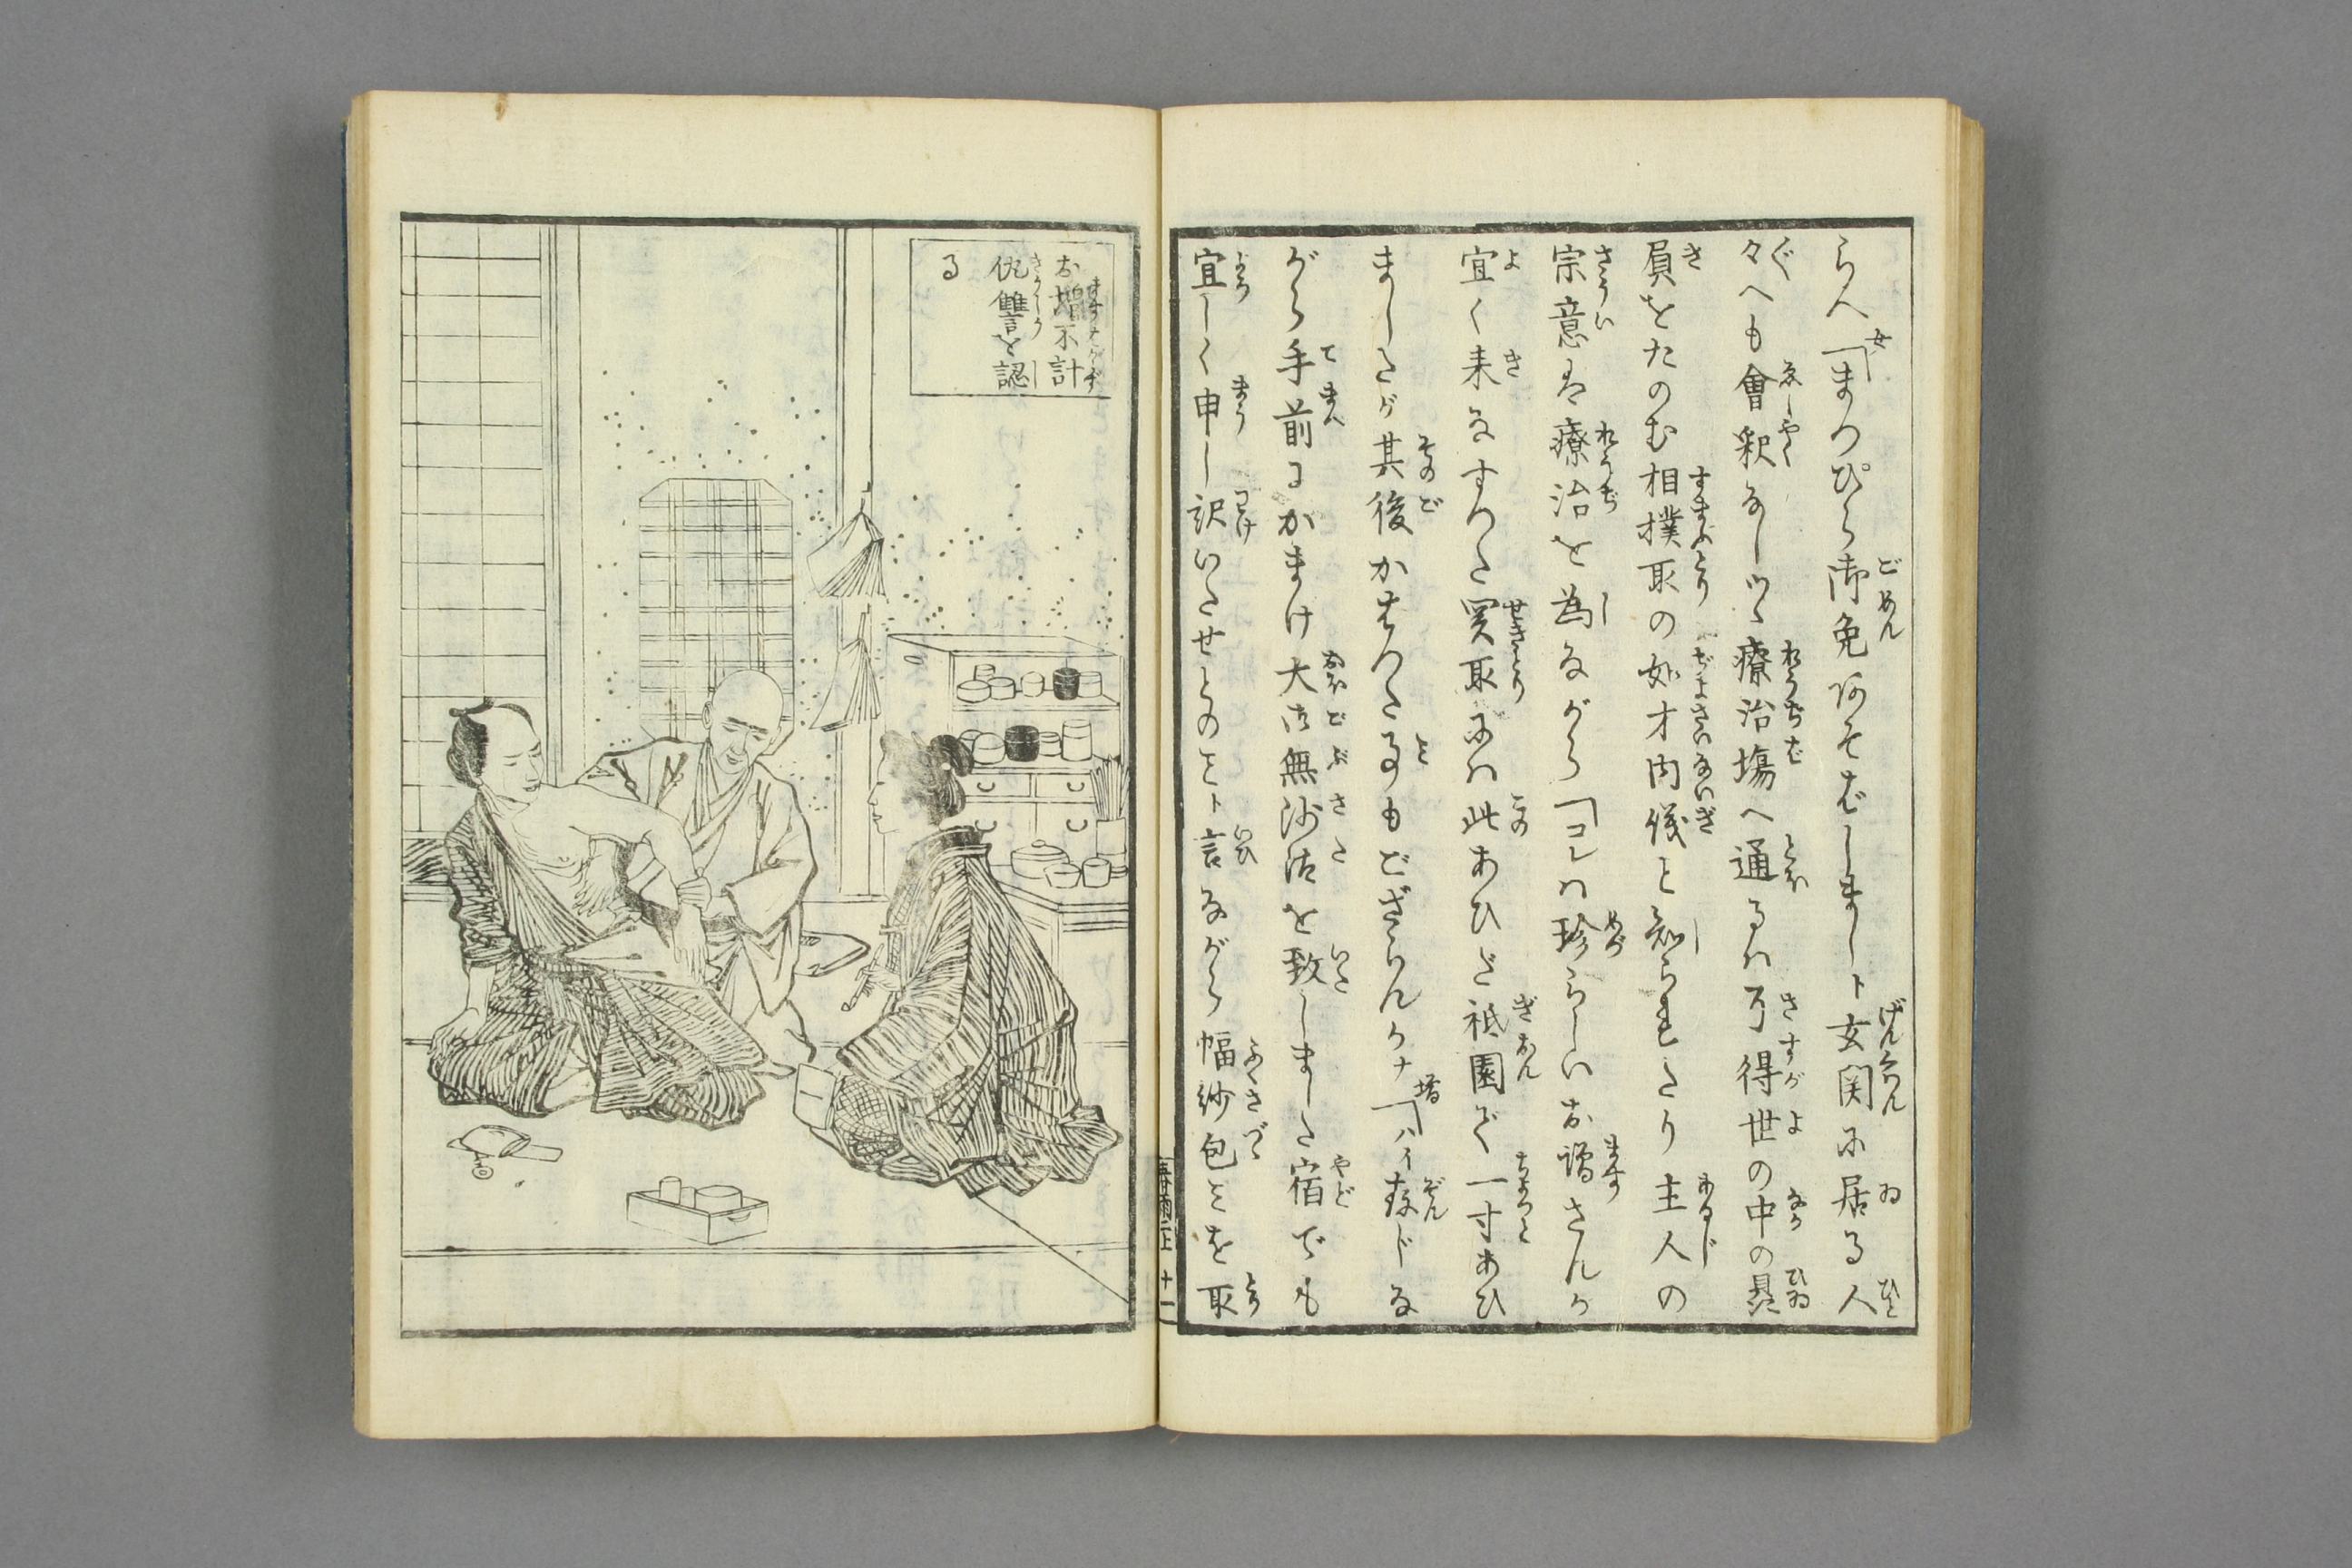 らへ女「まつぴら御免あそばしましト玄関に居る人
々へも會釈なしツヽ療治塲へ通るハ可得世の中の贔
屓をたのむ相撲取の如才内儀と知られたり主人の
宗意は療治を為ながら「コレハ珍らしいお増さんか
宜く来なすつた関取にハ此あひだ祇園で一寸あひ
ましたが其後かはつた事もござらんかナ増「ハイ存じな
がら手前にかまけ大御無沙汰を致しました宿でも
宜しく申し訳いたせとのことト言ながら幅紗包とを取
お増不計
仇讐を認
る
春雨二上 十一